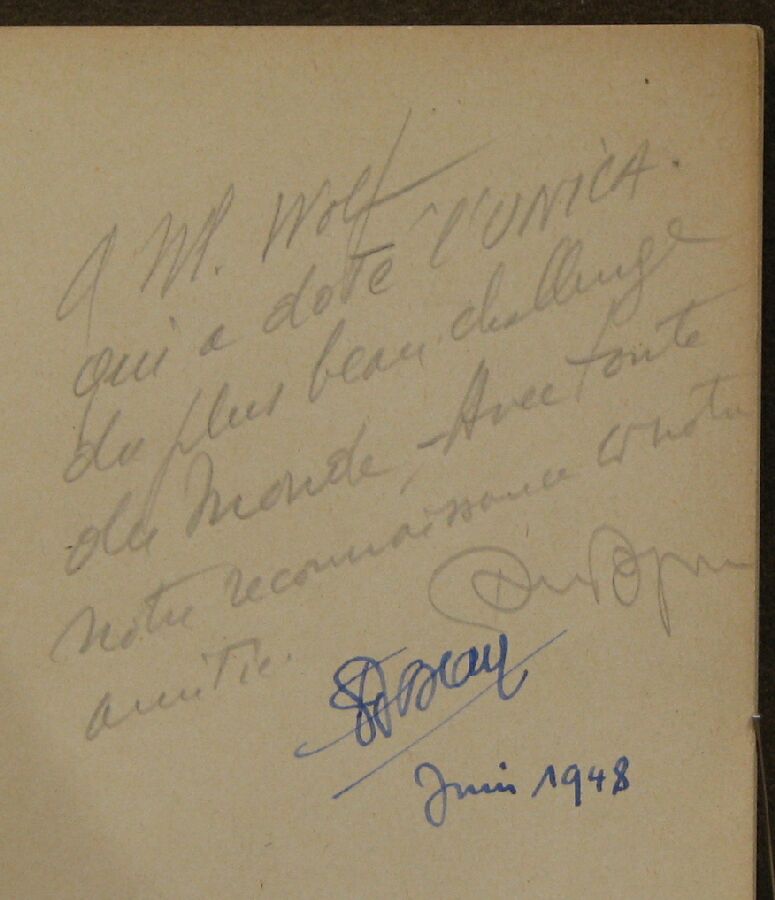 A M. Wolf
qui a doté l'UNICA.
du plus beau challenge
du Monde, Avec toute
notre reconnaissance et notre
amitié.
Juin 1948